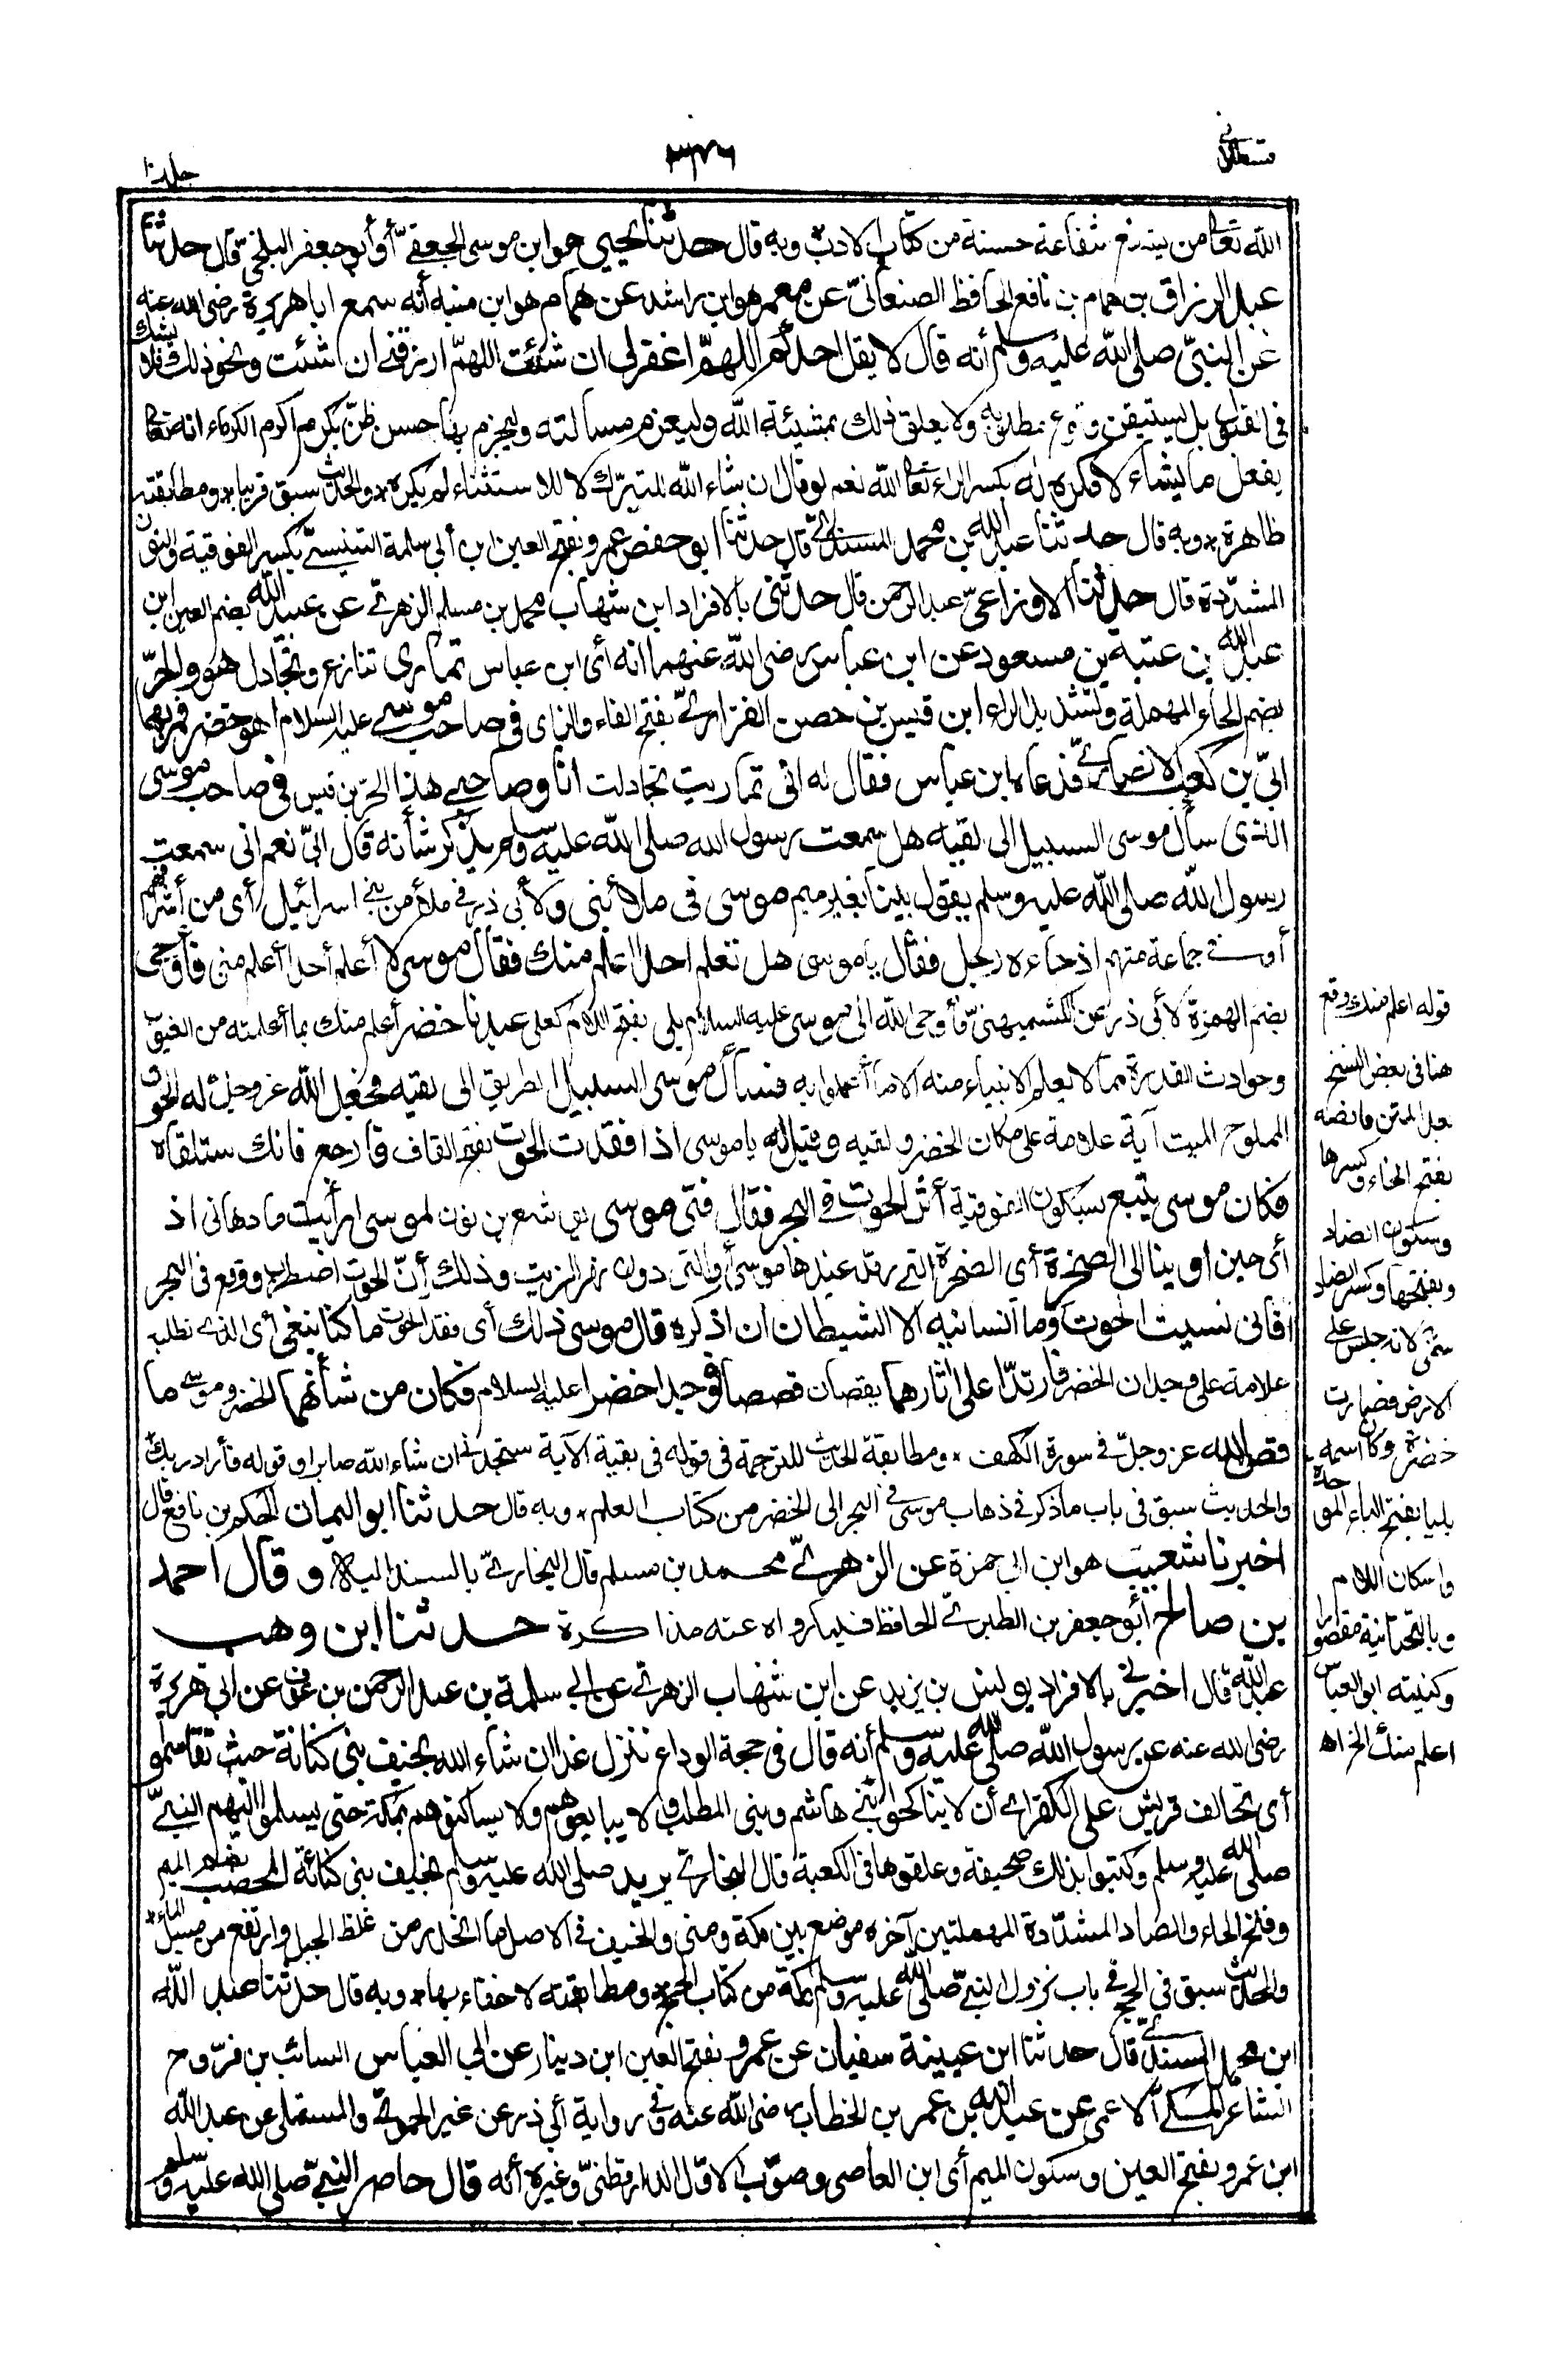 قسطلانی
٣٧٦
جلد ١٠
الله تعالى من يشفع شفاعة حسنة من كتاب الادب * وبه قال حدثنا يحيى هو ابن موسى الجعفىّ أو أبو جعفر البلخىّ قال حدثنا
عبد الرزاق بن همام بن نافع الحافظ الصنعانىّ عن معمر هو ابن راشد عن همام هو ابن منبه أنه سمع ابا هريرة رضى الله عنه
عن النبىّ صلى الله عليه وسلم أنه قال لا يقل احدكم اللهمّ اغفر لى ان شئت اللهمّ ارزقنى ان شئت ونحو ذلك فلا يشك
فى القبول بل يستيقن وقوع مطلوبه ولا يعلق ذلك بمشيئة الله وليعزم مسألته وليجزم بها حسن ظنّ بكرم أكرم الكرماء انه تعالى
يفعل ما يشاء لا مكره له بكسر الراء تعالى الله نعم لو قال ان شاء الله للتبرّك لا للاستثناء لم يكره * والحديث سبق قريبا * ومطابقته
ظاهرة * وبه قال حدثنا عبد الله بن محمد المسندىّ قال حدثنا ابو حفص عمرو بفتح العين ابن أبى سلمة التنيسىّ بكسر الفوقية والنون
المشدّدة قال حدثنا الاوزاعىّ عبد الرحمن قال حدثنى بالافراد ابن شهاب محمد بن مسلم الزهرىّ عن عبيد الله بضم العين ابن
عبد الله بن عتبة بن مسعود عن ابن عباس رضى الله عنهما انه أى ابن عباس تمارى تنازع وتجادل هو والحرّ
بضم الحاء المهملة وتشديد الراء ابن قيس بن حصن الفزارىّ بفتح الفاء والزاى فى صاحب موسى عليه السلام اهو خضر فمرّ بهما
ابىّ بن كعب الانصارىّ فدعاه ابن عباس فقال له انى تماريت تجادلت انا وصاحبى هذا الحرّ بن قيس فى صاحب موسى
الذى سأل موسى السبيل الى لقيه هل سمعت رسول الله صلى الله عليه وسلم يذكر شأنه قال ابىّ نعم انى سمعت
رسول الله صلى الله عليه وسلم يقول بينا بغير ميم موسى فى ملا بنى ولأبى ذر فى ملأ من بنى اسرائيل أى من أشرافهم
أو فى جماعة منهم اذ جاءه رجل فقال يا موسى هل تعلم احدا اعلم منك فقال موسى لا أعلم أحدا أعلم منى فأوحى
بضم الهمزة لأبى ذر عن الكشميهنىّ فأوحى الله الى موسى عليه السلام بلى بفتح اللام كعلى عبدنا خضر أعلم منك بما أعلمته من الغيوب
وحوادث القدرة مما لا يعلم الانبياء منه الا ما أعلموا به فسأل موسى السبيل الطريق الى لقيه فجعل الله عز وجل له الحوت
المملوح الميت آية علامة على مكان الخضر ولقيه وقيل له يا موسى اذا فقدت الحوت بفتح القاف فارجع فانك ستلقاه
فكان موسى يتبع بسكون الفوقية أثر الحوت فى البحر فقال فتى موسى يوشع بن نون لموسى ارأيت ما دهانى اذ
أى حين اوينا الى الصخرة أى الصخرة التى رقد عندها موسى أو التى دون نهر الزيت وذلك أنّ الحوت اضطرب ووقع فى البحر
فانى نسيت الحوت وما انسانيه الا الشيطان ان اذكره قال موسى ذلك أى فقد الحوت ما كنا نبغى أى الذى نطلبه
علامة على وجدان الخضر فارتدّا على اثارهما يقصان قصصا فوجدا خضرا عليه السلام فكان من شأنهما الخضر وموسى ما
قص الله عز وجلّ فى سورة الكهف * ومطابقة الحديث للترجمة فى قوله فى بقية الآية ستجدنى ان شاء الله صابرا وقوله فأراد ربك
والحديث سبق فى باب ما ذكر فى ذهاب موسى فى البحر الى الخضر من كتاب العلم * وبه قال حدثنا ابو اليمان الحكم بن نافع قال
اخبرنا شعيب هو ابن ابى حمزة عن الزهرىّ محمد بن مسلم قال البخارىّ بالسند اليه وقال احمد
بن صالح أبو جعفر بن الطبرىّ الحافظ فيما رواه عنه مذاكرة حدثنا ابن وهب
عبد الله قال اخبرنى بالافراد يونس بن يزيد عن ابن شهاب الزهرىّ عن ابى سلمة بن عبد الرحمن بن عوف عن ابى هريرة
رضى الله عنه عن رسول الله صلى الله عليه وسلم أنه قال فى حجة الوداع ننزل غدا ان شاء الله بخيف بنى كنانة حيث تقاسموا
أى تحالف قريش على الكفر أى أن لا يناكحوا بنى هاشم وبنى المطلب ولا يبايعوهم ولا يساكنوهم بمكة حتى يسلموا اليهم النبىّ
صلى الله عليه وسلم وكتبوا بذلك صحيفة وعلقوها فى الكعبة قال البخارىّ يريد صلى الله عليه وسلم بخيف بنى كنانة المحصب بضم الميم
وفتح الحاء والصاد المشدّدة المهملتين آخره موضع بين مكة ومنى والخيف فى الاصل ما انحدر من غلظ الجبل وارتفع من مسيل الماء *
والحديث سبق فى الحج فى باب نزول النبىّ صلى الله عليه وسلم مكة من كتاب الحج * ومطابقته لا خفاء بها * وبه قال حدثنا عبد الله
ابن محمد المسندىّ قال حدثنا ابن عيينة سفيان عن عمرو بفتح العين ابن دينار عن ابى العباس السائب بن فرّوح
الشاعر المكىّ الاعمى عن عبد الله بن عمر بن الخطاب رضى الله عنه وفى رواية أبى ذر عن غير الحموىّ والمستملى عن عبد الله
ابن عمرو بفتح العين وسكون الميم أى ابن العاصى وصوّب الاوّل الدارقطنىّ وغيره أنه قال حاصر النبىّ صلى الله عليه وسلم
قوله اعلم منك وقع
هنا فى بعض النسخ
بعد المتن ما نصه
بفتح الخاء وكسرها
وسكون الضاد
وبفتحها وكسر الضاد
سمى لانه جلس على
الارض فصارت
خضرة وكان اسمه
بليا بفتح الباء الموحدة
واسكان اللام
وبالتحتانية مقصورا
وكنيته ابو العباس
اعلم منك الخ اه